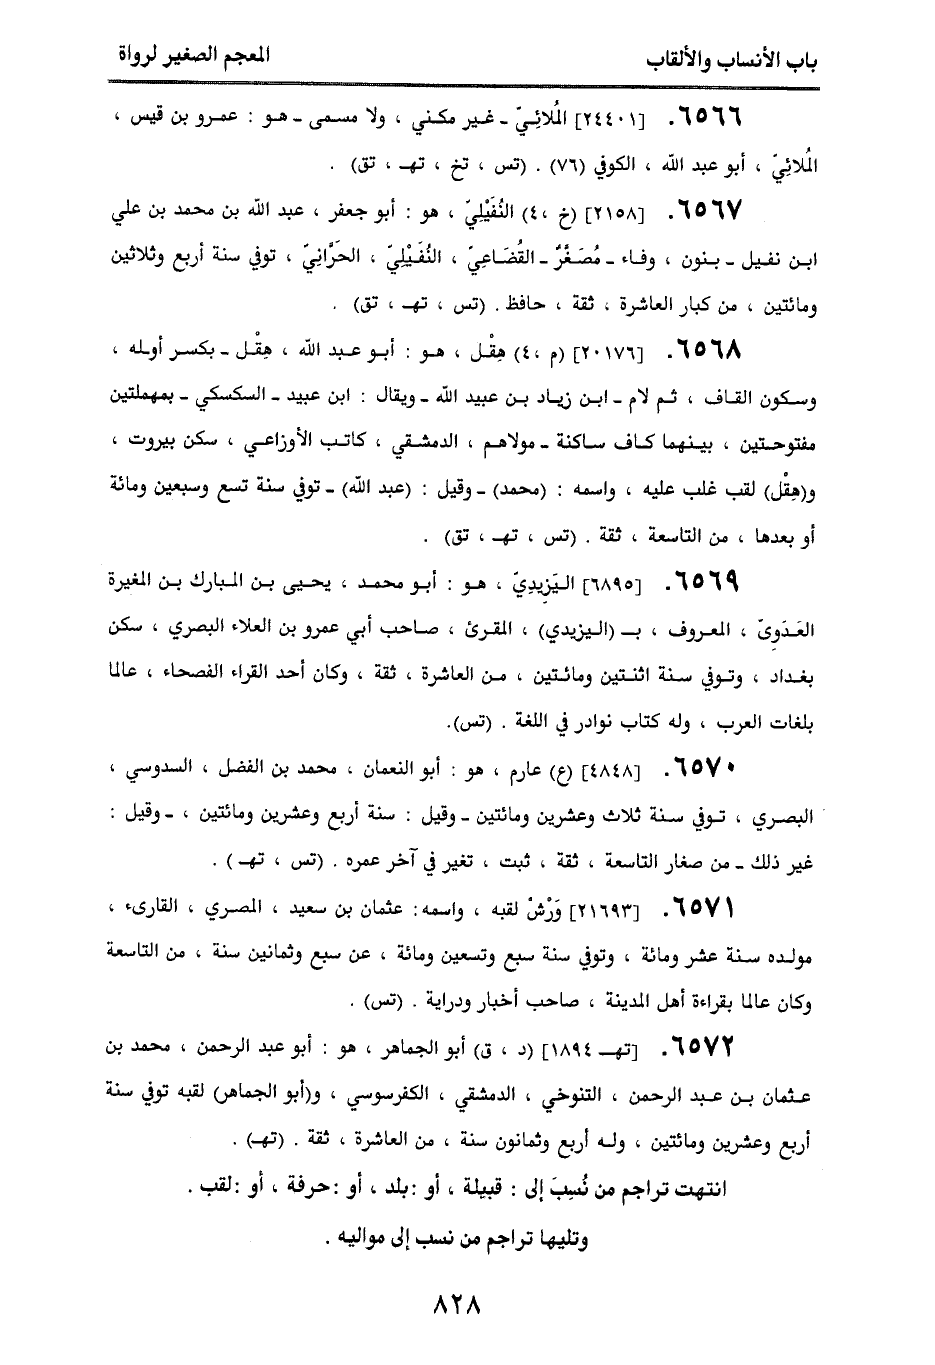 باب الأنساب والألقاب
المعجم الصغير لرواة
٦٥٦٦. [٢٤٤٠١] المُلائِيّ ـ غير مكني ، ولا مسمى ـ هو : عمرو بن قيس ،
المُلائِيّ ، أبو عبد الله ، الكوفي (٧٦) . (تس ، تخ ، تهـ ، تق) .
٦٥٦٧. [٢١٥٨] (خ ، ٤) النُفَيْلِيّ ، هو : أبو جعفر ، عبد الله بن محمد بن علي
ابن نفيل ـ بنون ، وفاء ـ مُصَغَّرٌ ـ القُضَاعِيّ ، النُفَيْلِيّ ، الحَرَّانِيّ ، توفي سنة أربع وثلاثين
ومائتين ، من كبار العاشرة ، ثقة ، حافظ . (تس ، تهـ ، تق) .
٦٥٦٨. [٢٠١٧٦] (م ، ٤) هِقْل ، هو : أبو عبد الله ، هِقْل ـ بكسر أوله ،
وسكون القاف ، ثم لام ـ ابن زياد بن عبيد الله ـ ويقال : ابن عبيد ـ السكسكي ـ بمهملتين
مفتوحتين ، بينهما كاف ساكنة ـ مولاهم ، الدمشقي ، كاتب الأوزاعي ، سكن بيروت ،
و(هِقْل) لقب غلب عليه ، واسمه : (محمد) ـ وقيل : (عبد الله) ـ توفي سنة تسع وسبعين ومائة
أو بعدها ، من التاسعة ، ثقة . (تس ، تهـ ، تق) .
٦٥٦٩. [٦٨٩٥] اليَزِيدِيّ ، هو : أبو محمد ، يحيى بن المبارك بن المغيرة
العَدَوِيّ ، المعروف ، بـ (اليزيدي) ، المقرئ ، صاحب أبي عمرو بن العلاء البصري ، سكن
بغداد ، وتوفي سنة اثنتين ومائتين ، من العاشرة ، ثقة ، وكان أحد القراء الفصحاء ، عالما
بلغات العرب ، وله كتاب نوادر في اللغة . (تس).
٦٥٧٠. [٤٨٤٨] (ع) عارم ، هو : أبو النعمان ، محمد بن الفضل ، السدوسي ،
البصري ، توفي سنة ثلاث وعشرين ومائتين ـ وقيل : سنة أربع وعشرين ومائتين ، ـ وقيل :
غير ذلك ـ من صغار التاسعة ، ثقة ، ثبت ، تغير في آخر عمره . (تس ، تهـ ) .
٦٥٧١. [٢١٦٩٣] وَرْشْ لقبه ، واسمه: عثمان بن سعيد ، المصري ، القارىء ،
مولده سنة عشر ومائة ، وتوفي سنة سبع وتسعين ومائة ، عن سبع وثمانين سنة ، من التاسعة
وكان عالما بقراءة أهل المدينة ، صاحب أخبار ودراية . (تس) .
٦٥٧٢. [تهـ ١٨٩٤] (د ، ق) أبو الجماهر ، هو : أبو عبد الرحمن ، محمد بن
عثمان بن عبد الرحمن ، التنوخي ، الدمشقي ، الكفرسوسي ، و(أبو الجماهر) لقبه توفي سنة
أربع وعشرين ومائتين ، وله أربع وثمانون سنة ، من العاشرة ، ثقة . (تهـ) .
انتهت تراجم من نُسِبَ إلى : قبيلة ، أو :بلد ، أو :حرفة ، أو :لقب .
وتليها تراجم من نسب إلى مواليه .
٨٢٨